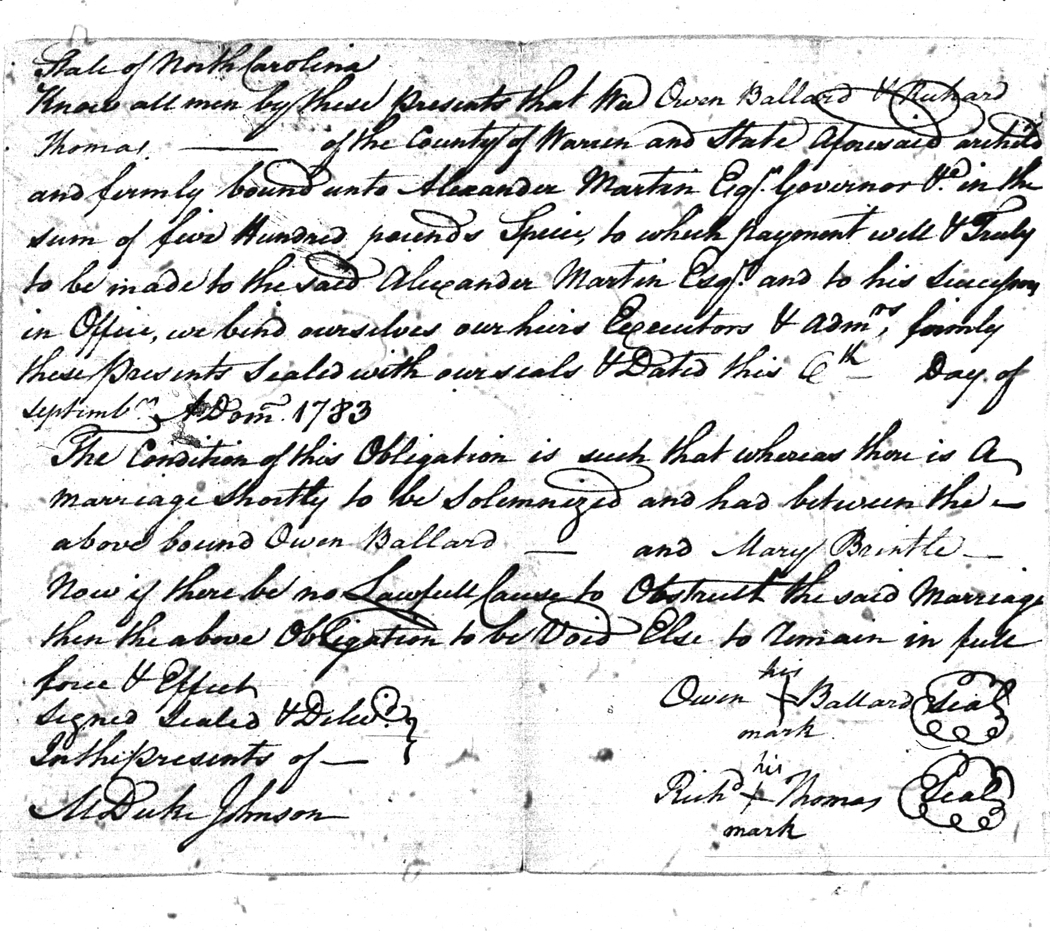 State of North Carolina
Know all men by these presents that We Owen Ballard & Richard
Thomas. —— of the County of Warren and State Aforesaid are held
and firmly bound unto Alexander Martin Esqr. Governor &c. in the
sum of five Hundred pounds Specie, to which payment well & Truly
to be made to the said Alexander Martin Esqr. and to his Successors
in Office, we bind ourselves our heirs Executors & admrs, firmly
these presents Sealed with our seals & Dated this 6th Day of
Septembr. A Dom. 1783
The Condition of this Obligation is such that whereas there is A
marriage shortly to be Solemnized and had between the —
above bound Owen Ballard — and Mary Brintle —
Now if there be no Lawfull Cause to Obstruct the said Marriage
then the above Obligation to be Void Else to remain in full
force & Effect
Signed Sealed & Deliv'd. }
In the presents of —
M Duke Johnson
his
Owen + Ballard Seal
mark
his
Richd + Thomas Seal
mark